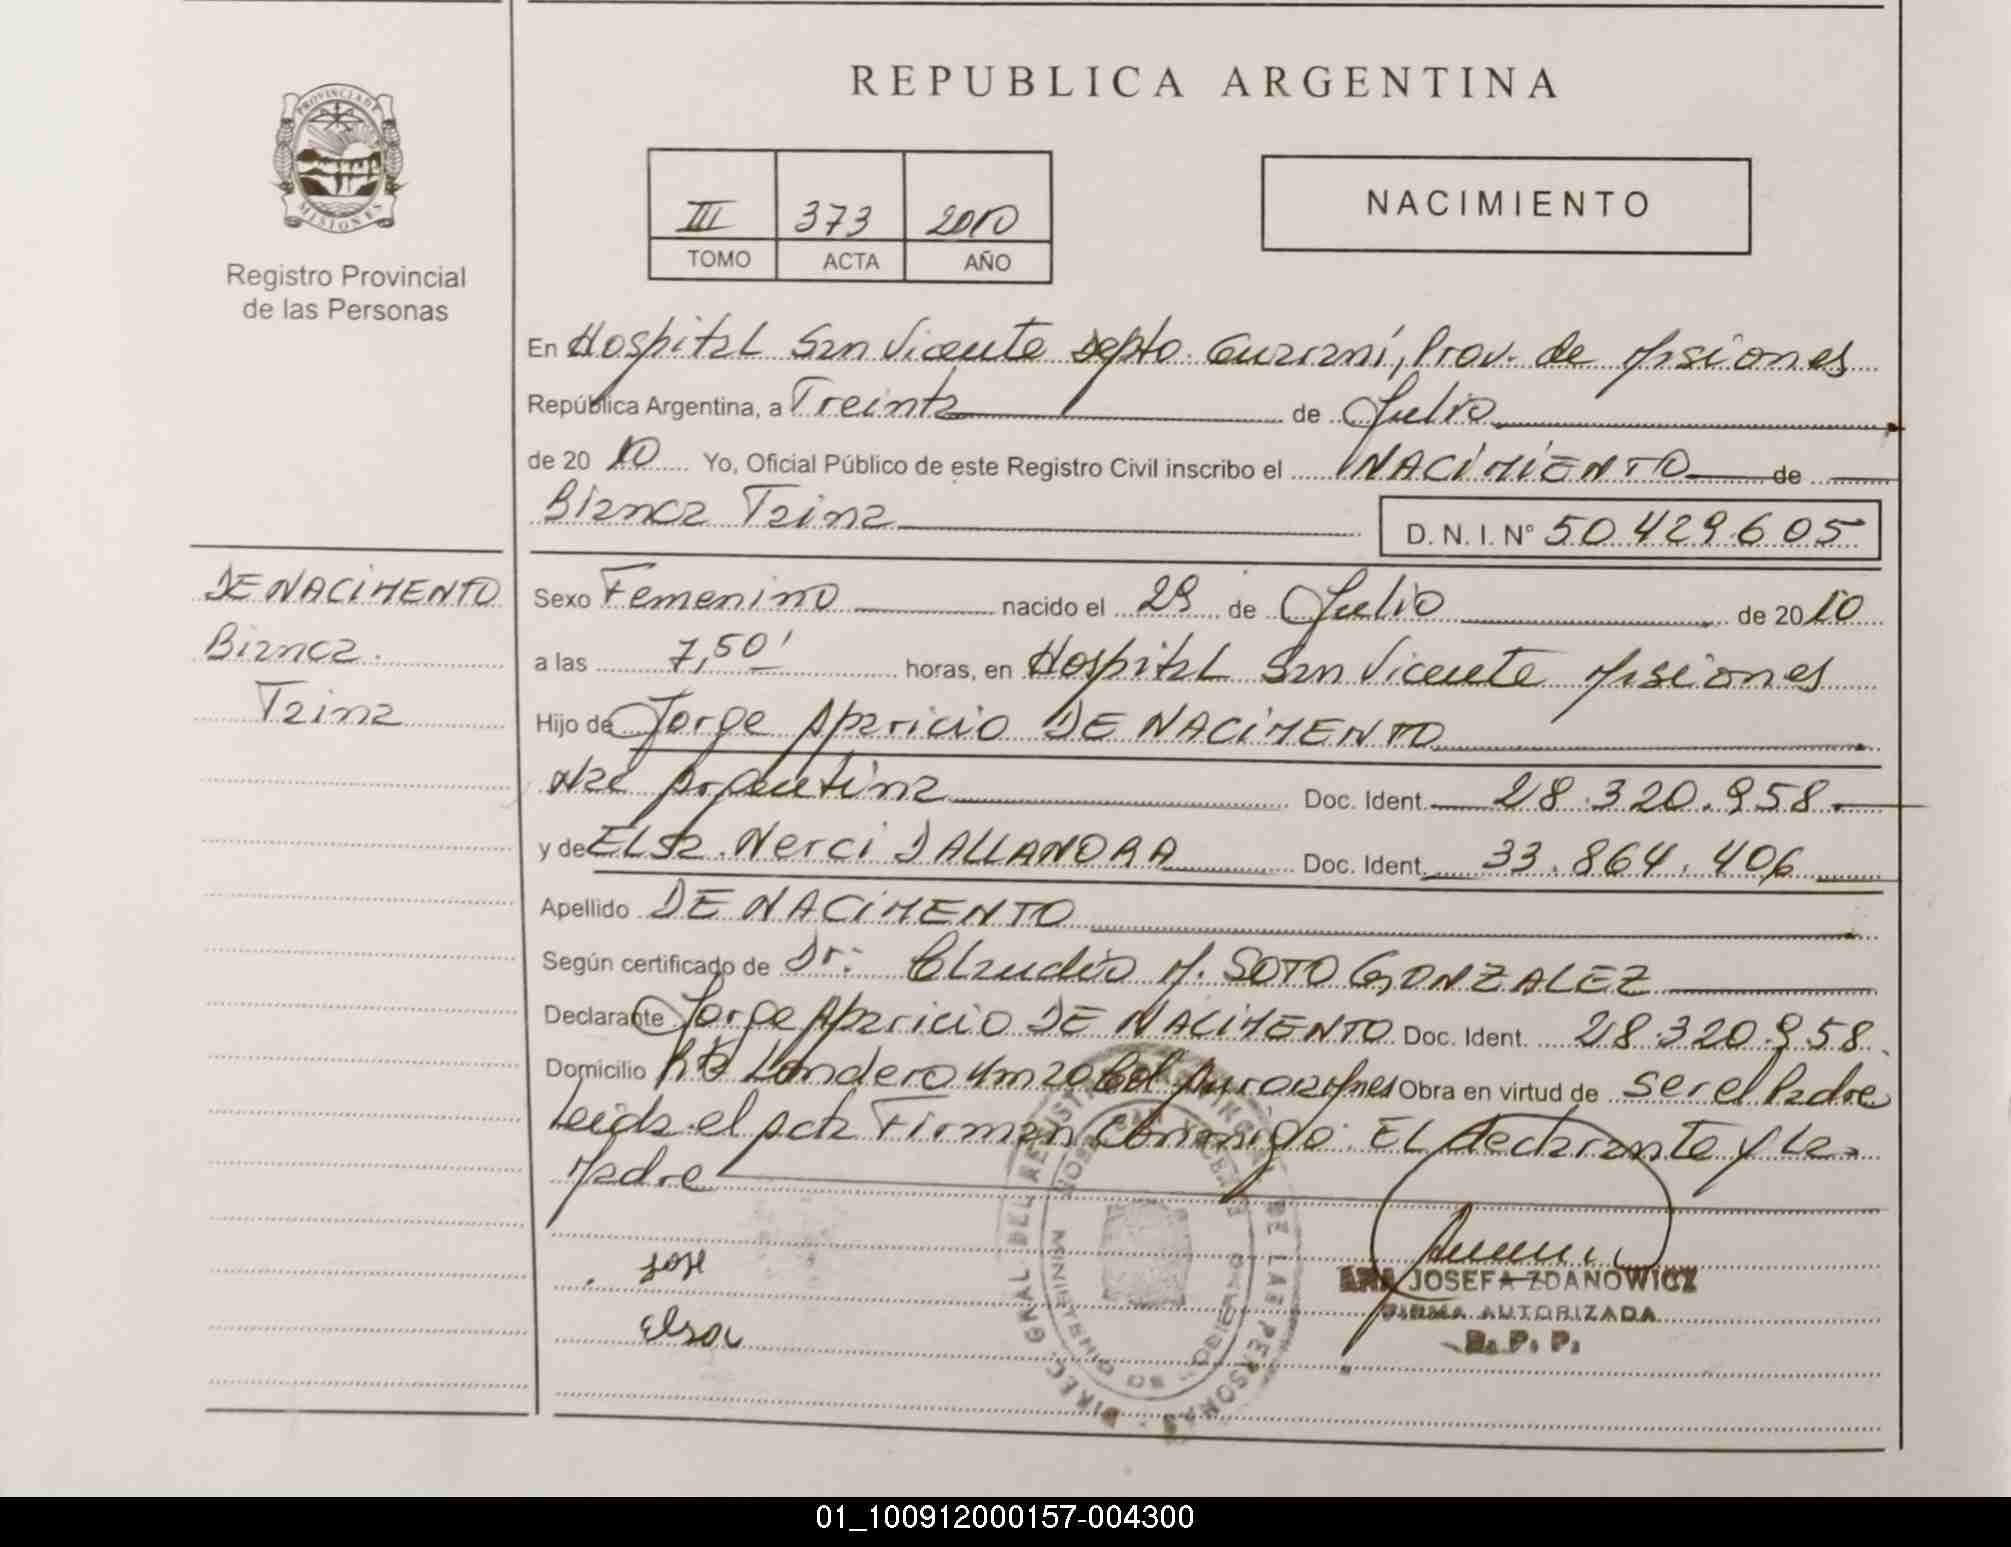 REPUBLICA ARGENTINA
PROVINCIA DE
MISIONES
Registro Provincial
de las Personas
III 373 2010
TOMO ACTA AÑO
NACIMIENTO
En Hospital San Vicente Depto. Guaraní, Prov. de Misiones
República Argentina, a Treinta de Julio
de 2010 Yo, Oficial Público de este Registro Civil inscribo el NACIMIENTO de
Bianca Taina
D. N. I. N° 50429605
DE NACIMENTO
Bianca.
Taina
Sexo Femenino nacido el 29 de Julio de 2010
a las 7,50' horas, en Hospital San Vicente Misiones
Hijo de Jorge Aparicio DE NACIMENTO
Nac Argentina Doc. Ident. 28.320.958.
y de Elsa Nerci DALLANORA Doc. Ident. 33.864.406
Apellido DE NACIMENTO
Según certificado de Dr: Claudio M. SOTO GONZALEZ
Declarante Jorge Aparicio DE NACIMENTO Doc. Ident. 28.320.958.
Domicilio Londero Km 20 Col. Aurora Obra en virtud de ser el Padre
Leida el acta Firman Conmigo: EL declarante y La
Madre
Elsa
ANA JOSEFA ZDANOWICZ
FIRMA AUTORIZADA
R. P. P.
DIREC. GRAL DEL REGISTRO PROVINCIAL DE LAS PERSONAS
01_100912000157-004300